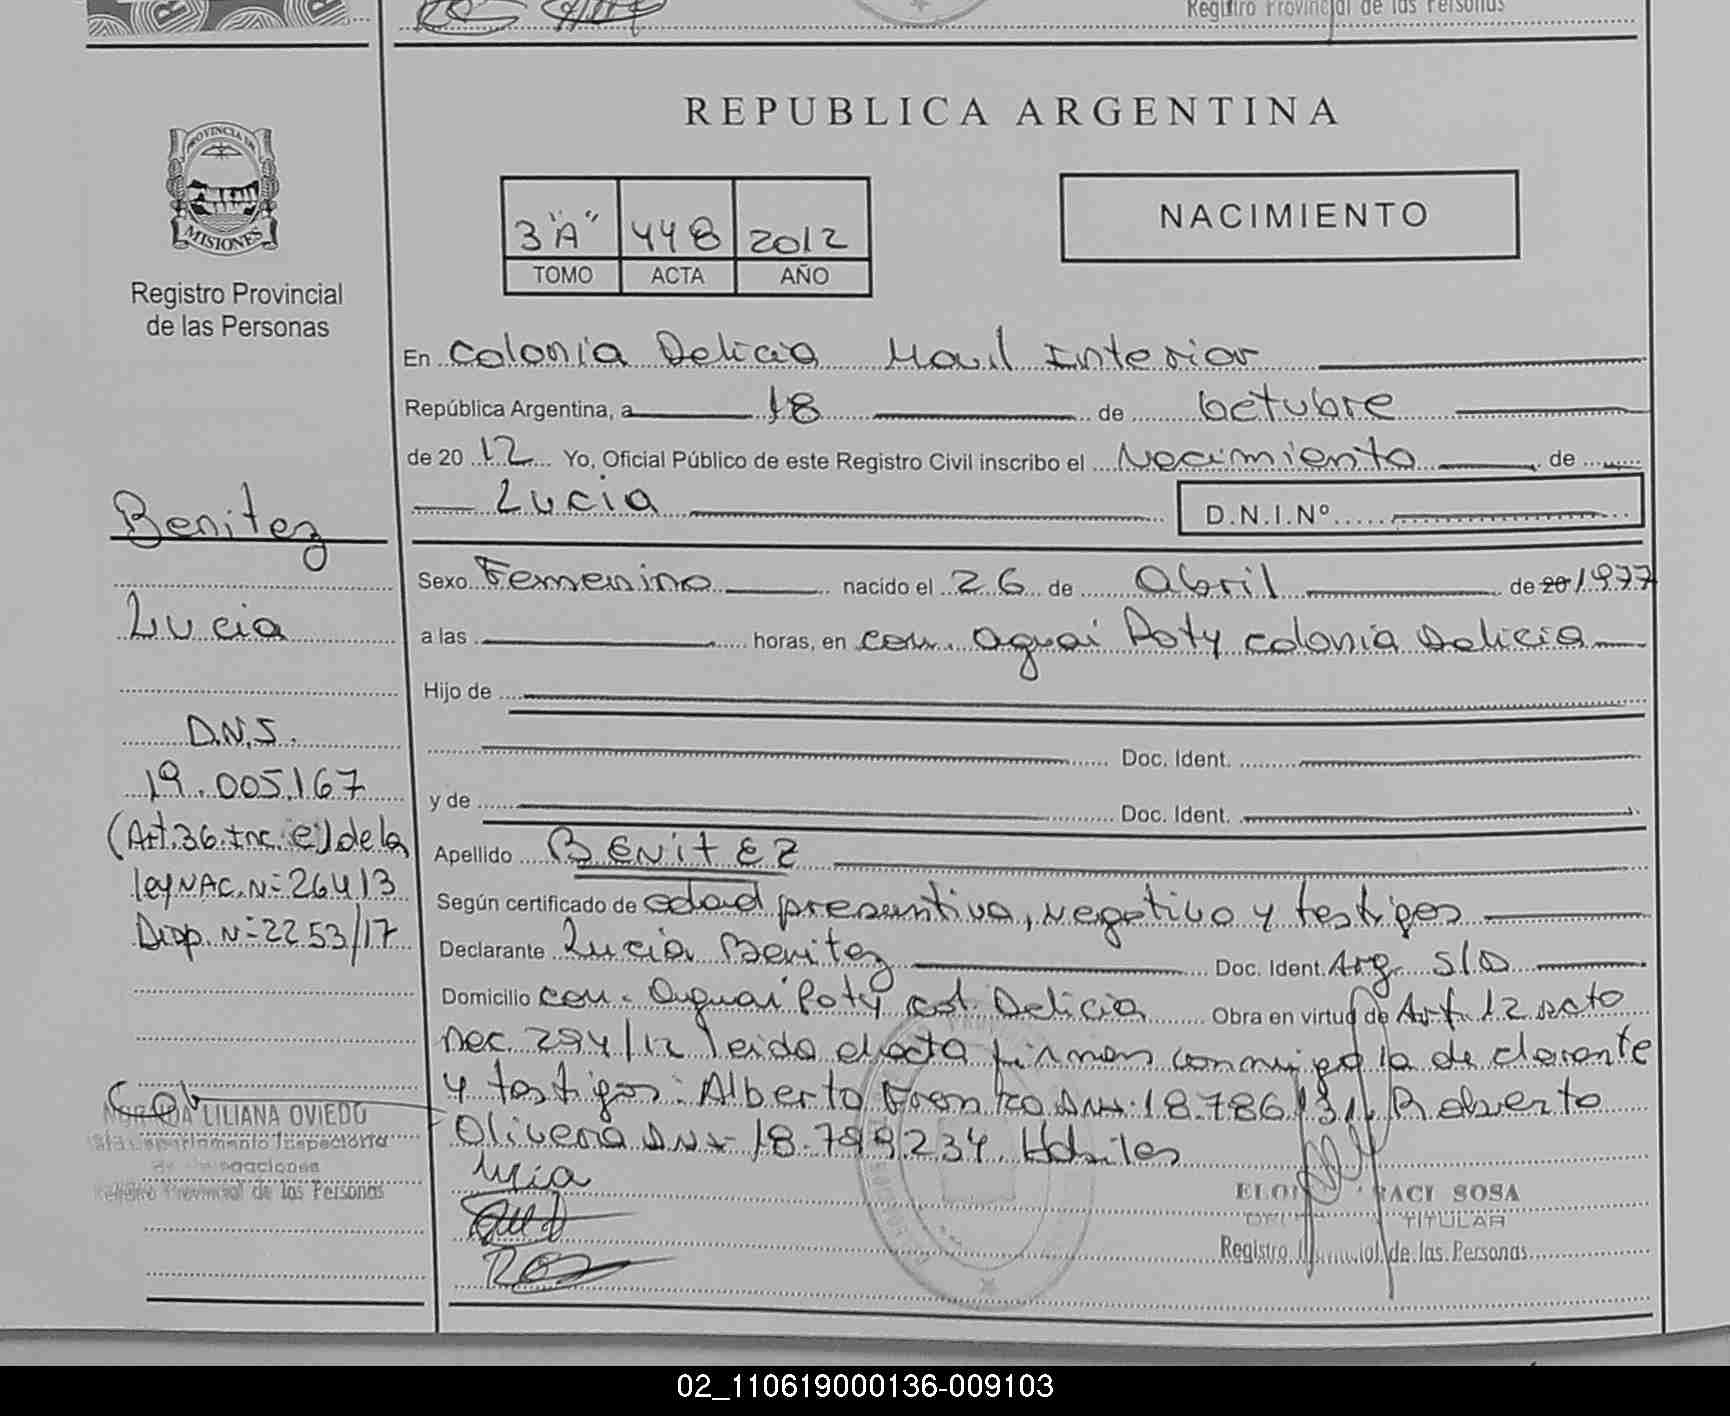 Registro Provincial de las Personas
REPUBLICA ARGENTINA
PROVINCIA DE
MISIONES
Registro Provincial
de las Personas
3 "A" 448 2012
TOMO ACTA AÑO
NACIMIENTO
En Colonia Delicia Movil Interior
República Argentina, a 18 de Octubre
de 20 12 Yo, Oficial Público de este Registro Civil inscribo el Nacimiento de
Lucia D.N.I.Nº
Sexo Femenino nacido el 26 de Abril de 20 1977
a las horas, en com. Aguai Poty Colonia Delicia
Hijo de
Doc. Ident.
y de Doc. Ident.
Apellido BENITEZ
Según certificado de edad presuntiva, negativo y testigos
Declarante Lucia Benitez Doc. Ident. Arg. S/D
Domicilio com. Aguai Poty Col. Delicia Obra en virtud de Art. 12
Dec. 294/12 leida el acta firman conmigo la declarante
y testigos: Alberto DNI 18.786 Roberto
Olivera DNI 18.799.234. Habiles
Lucia
SOSA
TITULAR
Registro de las Personas
Benitez
Lucia
D.N.I.
19.005.167
(Art. 36. Inc. e) de la
ley NAC. Nº 26413
Disp. Nº 2253/17
LILIANA OVIEDO
Departamento Inspectoria
Registro Provincial de las Personas
02_110619000136-009103